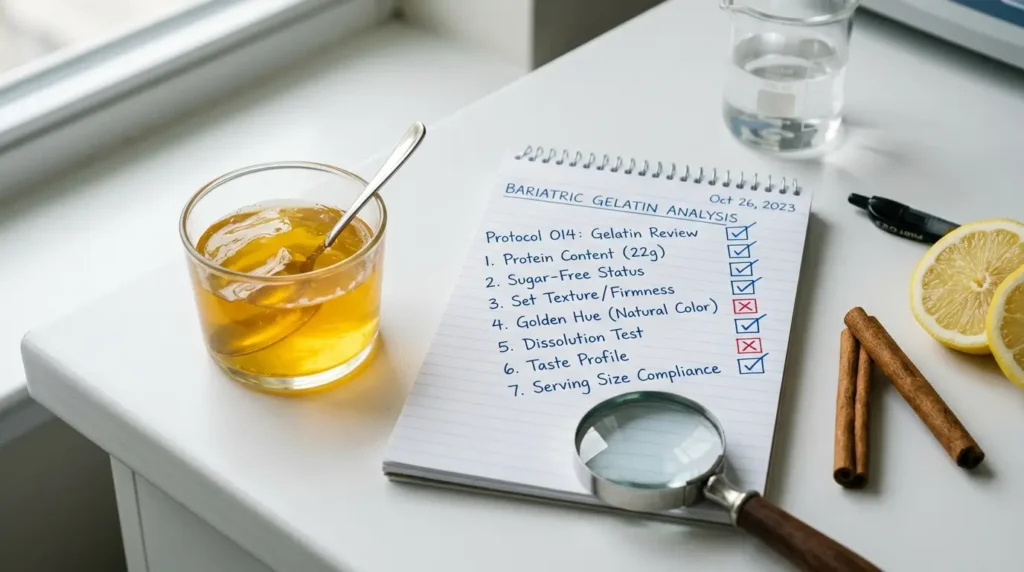 BARIATRIC GELATIN ANALYSIS
Oct 26, 2023
Protocol 014: Gelatin Review
1. Protein Content (22g)
2. Sugar-Free Status
3. Set Texture/Firmness
4. Golden Hue (Natural Color)
5. Dissolution Test
6. Taste Profile
7. Serving Size Compliance